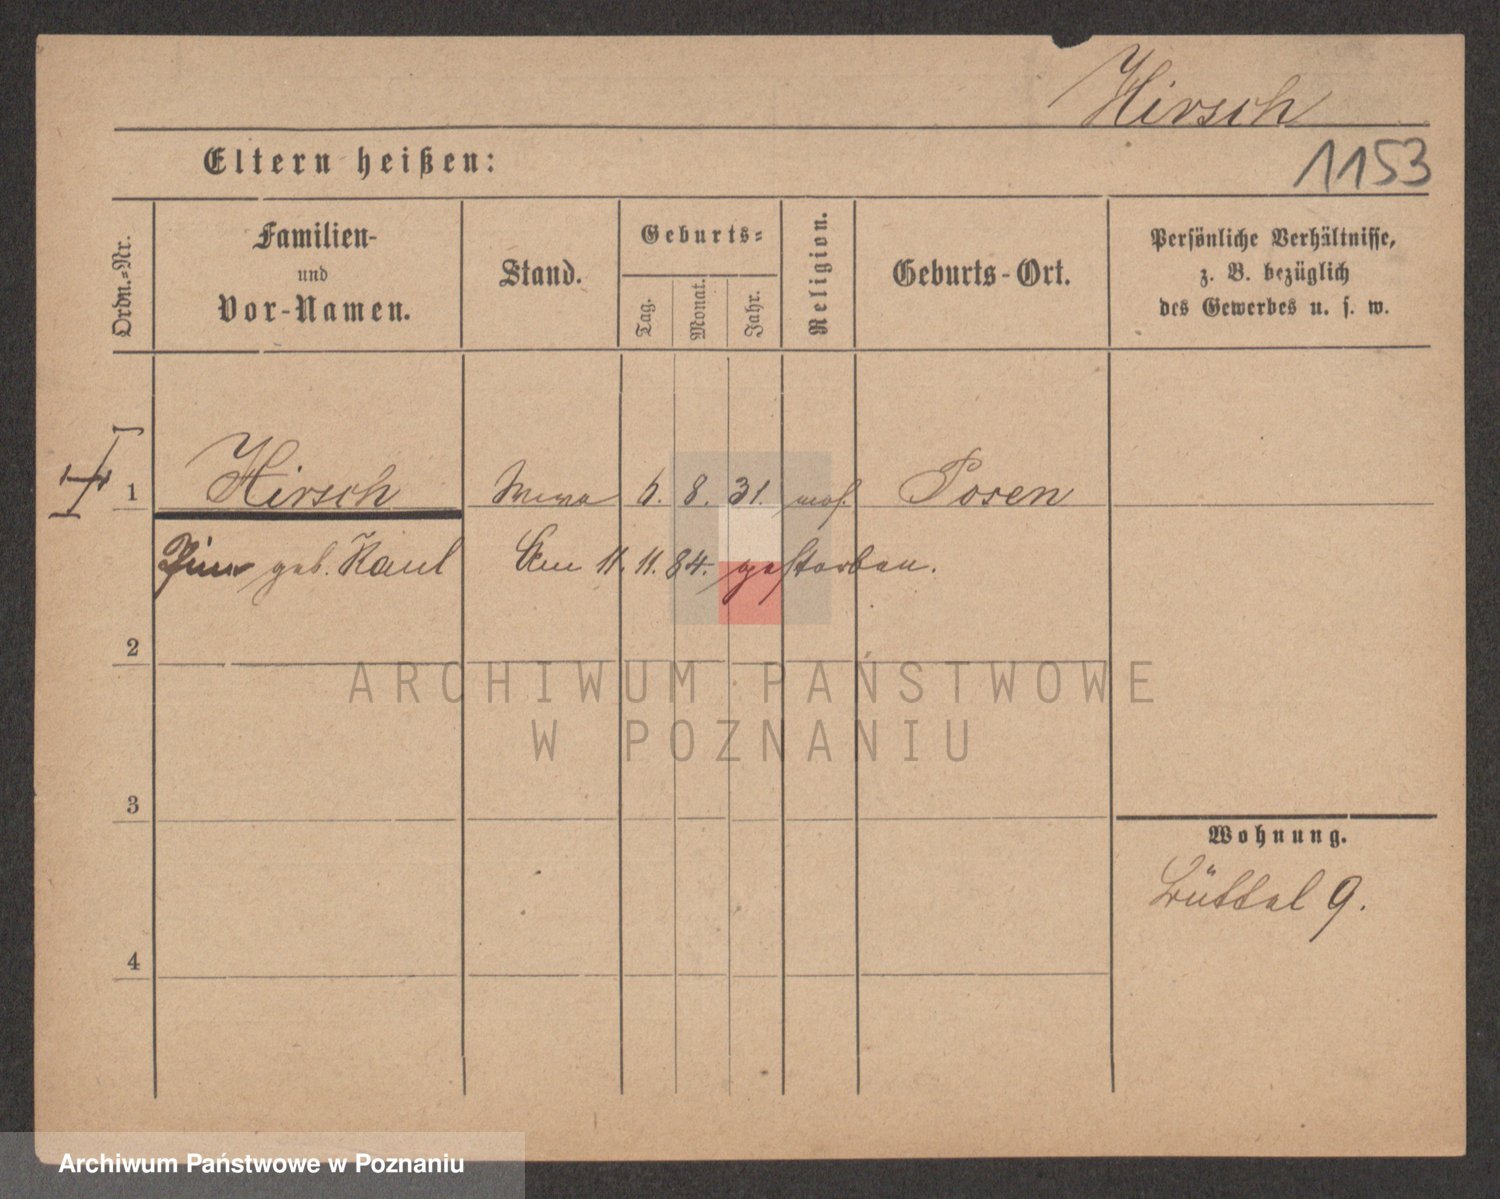 Hirsch
Eltern heißen:
1153
Ordn.-Nr.
Familien-
und
Vor-Namen.
Stand.
Geburts-
Tag.
Monat.
Jahr.
Religion.
Geburts-Ort.
Persönliche Verhältnisse,
z. B. bezüglich
des Gewerbes u. s. w.
1 Hirsch 6. 8. 31. mos. Posen
geb. Kaul Am 11. 11. 84. gestorben.
2
ARCHIWUM PAŃSTWOWE
W POZNANIU
3
Wohnung.
Büttel 9.
4
Archiwum Państwowe w Poznaniu